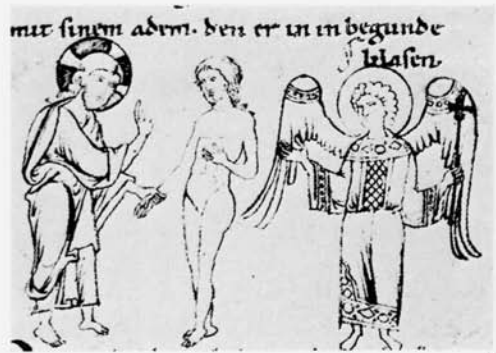 mit sinem adem. den er in in begunde
blasen